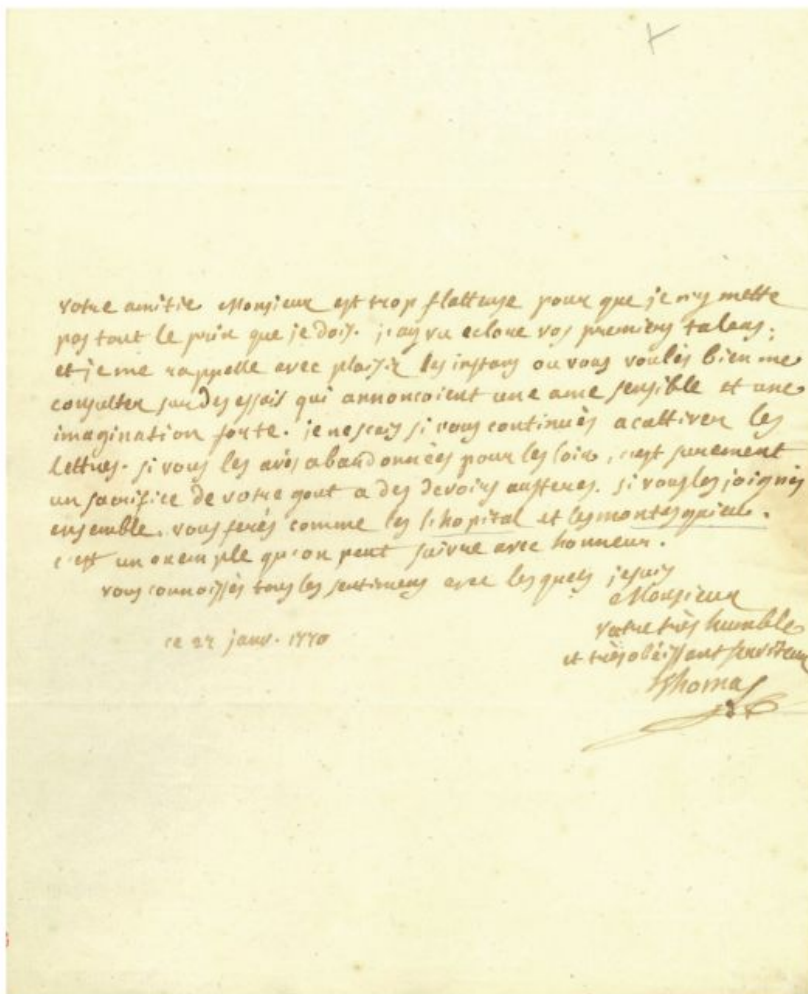 votre amitié Monsieur est trop flatteuse pour que je n'y mette
pas tout le prix que je dois. j'ay vu eclore vos premiers talens;
et je me rappelle avec plaisir les instans ou vous voulés bien me
consulter sur des essais qui annoncoient une ame sensible et une
imagination forte. je ne scais si vous continués a cattiver les
lettres. si vous les avés abandonnées pour les loix, c'est surement
un sacrifice de votre gout a des devoirs austeres. si vous les joignés
ensemble, vous ferés comme les l'hopital et les montesquieu.
c'est un exemple qu'on peut suivre avec honneur.
vous connoissés tous les sentimens avec lesquels je suis
Monsieur
votre très humble
et très obéissant serviteur
ce janv. 1770
Thomas